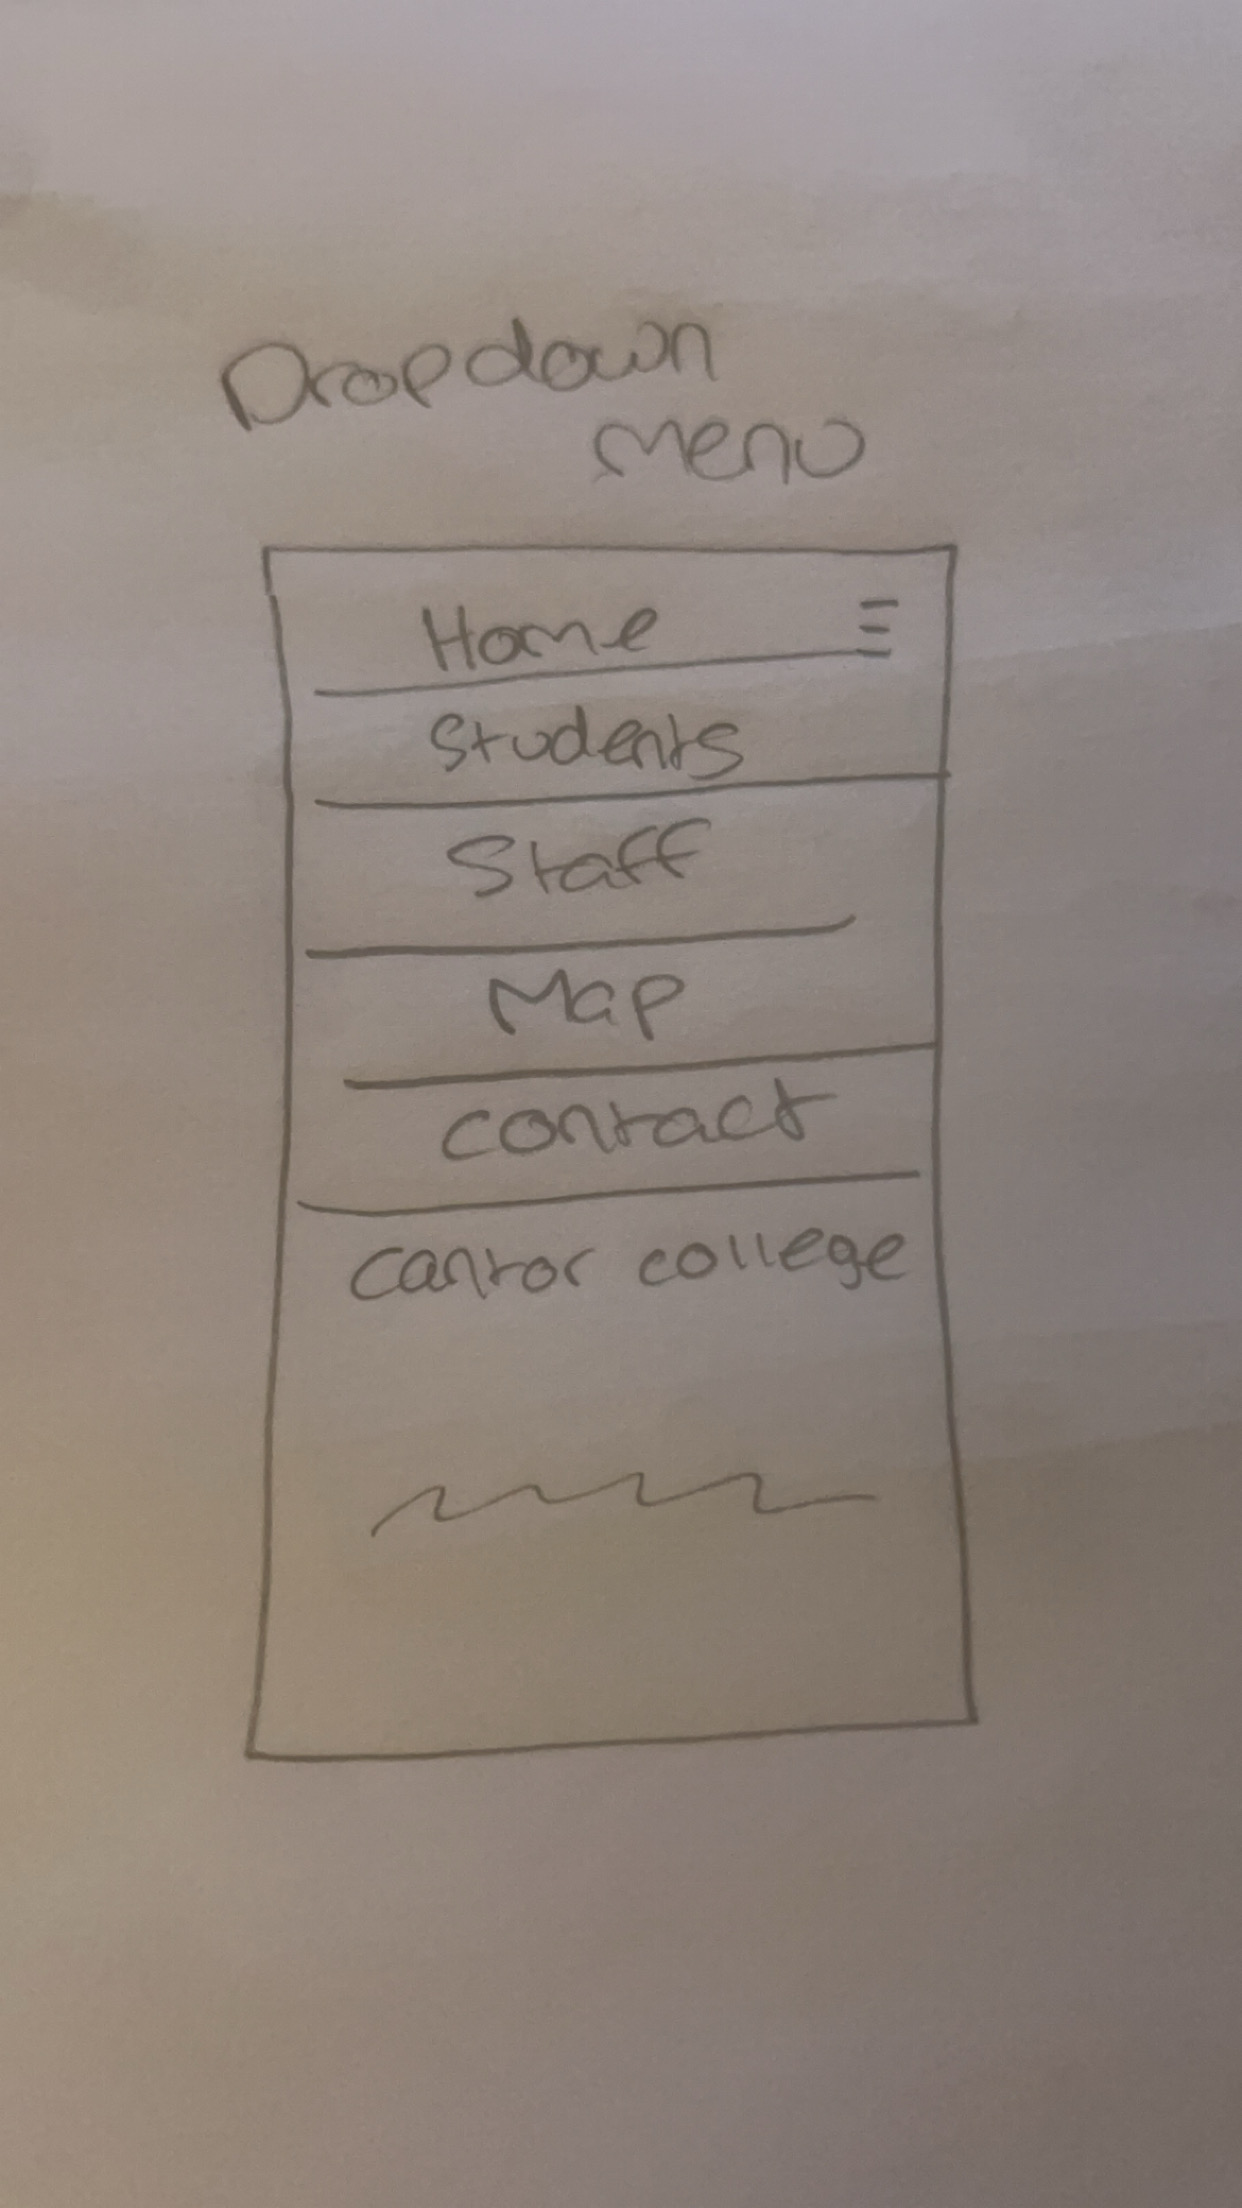 Dropdown
menu
Home
Students
Staff
Map
contact
cantor college